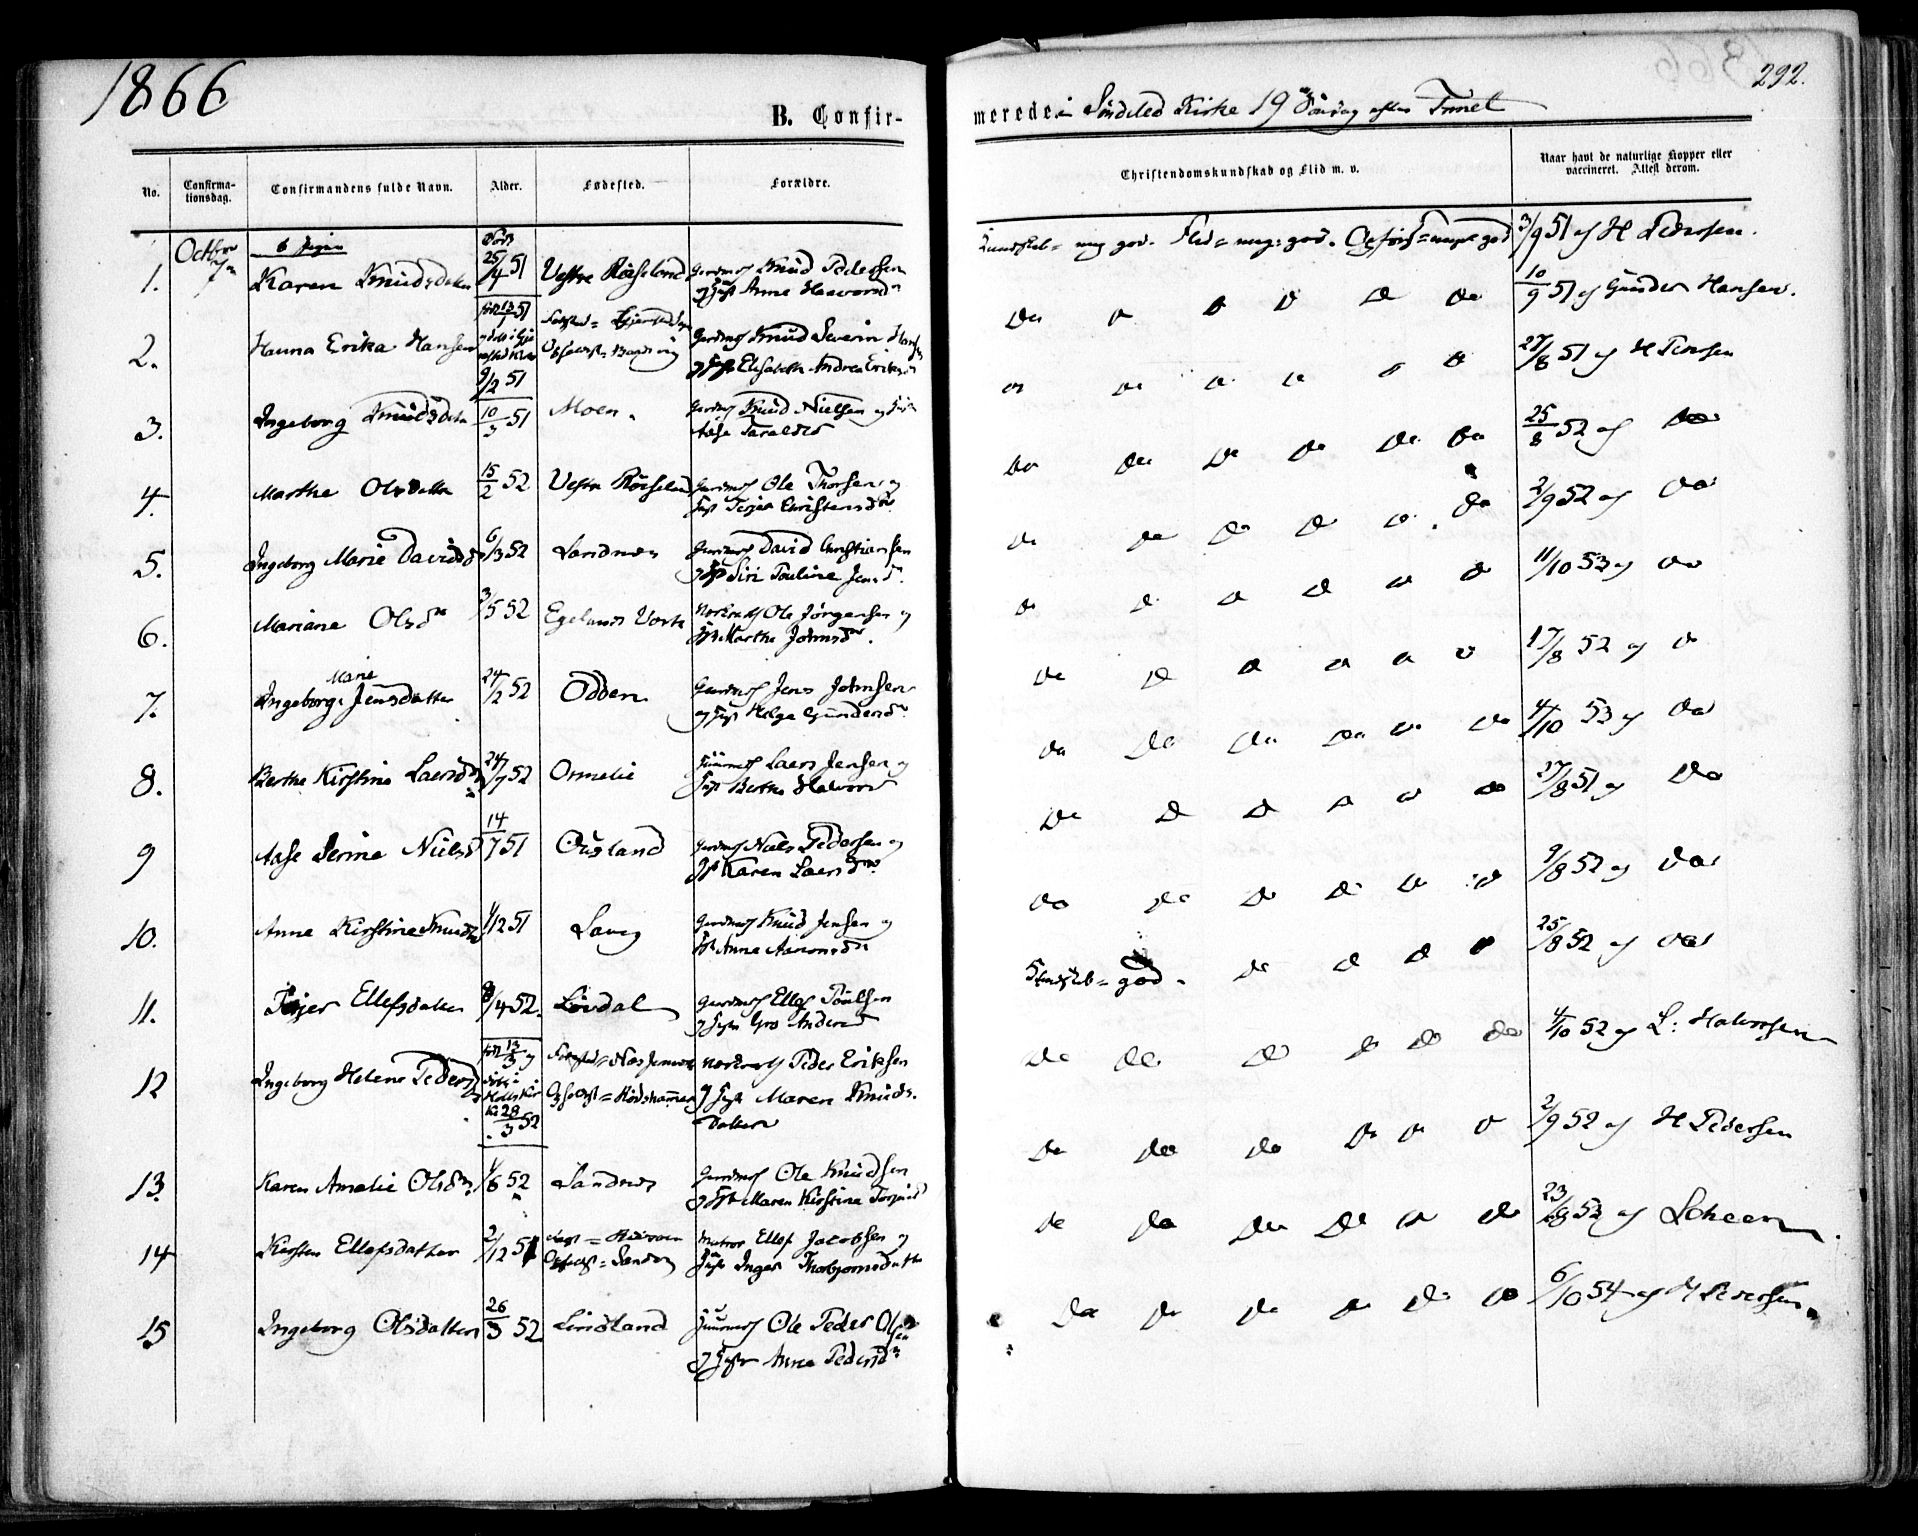 1866
292.
B. Confir-
merede i Söndeled Kirke 19 Söndag efter Trinit
No.
Confirma-
tionsdag.
Confirmandens fulde Navn.
Alder.
Fødested.
Forældre.
Christendomskundskab og Flid m. v.
Naar havt de naturlige Kopper eller
vaccineret. Attest derom.
Octbr
7
b Piger
Född
1. Karen Knudsdatter 25/4 51 Vestre Röiseland Gaardmd Knud Pedersen
og Anne Halvorsd
Kundskab = meg god. Flid = meg: god. Opförs = meget god 3/9 51 af H Pedersen.
2. Hanna Erika Hansen 13/1 51
9/2 51
Gaardmd Knud Severin
og Elisabeth Andrea
Do 10/9 51 af Gunder Hansen.
3. Ingeborg Knudsdatter 10/3 51 Moen. Gaardmd Knud Nielsen og
Aase Taraldsd
27/8 51 af H Pedersen
4. Marthe Olsdatter 15/2 52 Vestre Röiseland Gaardmd Ole Thorsen og
Terjer Christensd
Do Do Do Do Do Do 25/8 52 af Do
5. Ingeborg Marie Davidsd 6/3 52 Sandnes Gaardmd David Christiansen
og Siri Pauline Jensd.
Do Do Do Do Do Do 2/9 52 af Do
6. Mariane Olsdr 3/5 52 Egelands Værk Ole Jörgensen og
Marthe Johnsd.
Do Do Do Do Do Do 11/10 53 af Do
7. Ingeborg Marie Jensdatter 24/2 52 Odden Gaardmd Jens Johnsen
og Helge Gundersd
Do Do Do Do Do Do 17/8 52 af Do
8. Berthe Kirstine Laersd 24/7 52 Ormelie Huusmd Laers Jensen og
Berthe Halvorsd
Do Do Do Do Do Do 4/10 53 af Do
9 Aase Serine Nielsd 14/7 51 Ousland Gaardmd Niels Pedersen og
Karen Laersd
Do Do Do Do Do Do 27/8 51 af Do
10. Anne Kirstine Knudsd 1/12 51 Lavig Gaardmd Knud Jensen og
Anne Aanonsd
Do Do Do Do Do Do 9/8 52 af Do
11. Terjer Ellefsdatter 8/4 52. Lövdal Gaardmd Ellef Poulsen
og Gro Andersd
Kundskab = god. Do Do Do Do 25/8 52 af Do
12 Ingeborg Helene Pedersd 13/3
28/3 52
Peder Eriksen
og Maren Knuds.
datter
Do Do Do Do Do Do 4/10 52 af L: Halvorsen
13. Karen Amalie Olsdr. 1/6 52 Sandnes Gaardmd Ole Knudsen
og Maren Kirstine
Do Do Do Do Do Do 2/9 52 af H Pedersen
14 Kirsten Ellefsdatter 2/12 51 Ellef Jacobsen og
Inger Thorbjornsdatter
Do Do Do Do Do Do 23/8 52 af Scheen.
15 Ingeborg Olsdatter 26/3 52 Lindland Huusmd Ole Peder Olsen
og Anne Pedersdr
Do Do Do Do Do Do 6/10 54 af H Pedersen